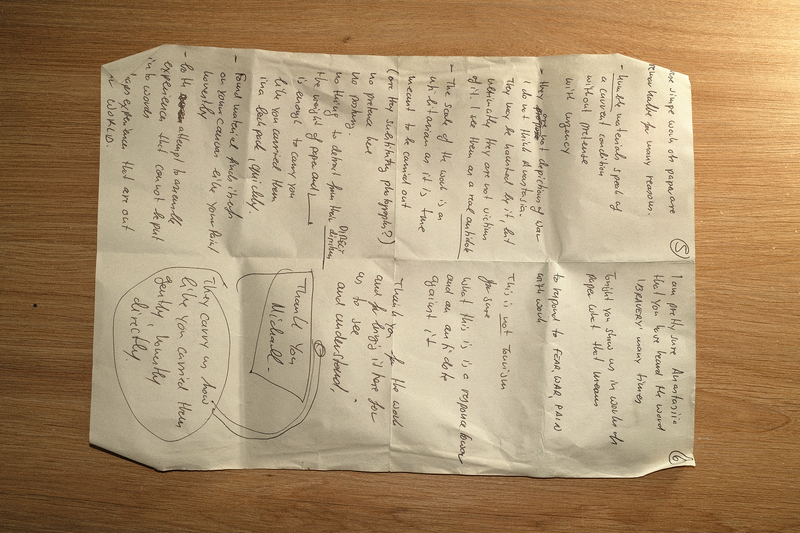 ⑤
works on paper are
remarkable for many reasons.
- humble materials speak of
a current condition
without pretense
with urgency
- they are not depictions of war
I do not think Anastasiia.
They may be haunted by it, but
ultimately they are not victims
of it. I see them as a real antidote
- The scale of the work is as
utilitarian as it is true
meant to be carried out
(are they substituting photographs?)
no pretense here
no posturing
nothing to detract from their DIRECT
the weight of paper and
is enough to carry you
like you carried them
in a backpack, quickly
- Found material finds itself
on your canvas, like your pain
honestly
- both attempt to assemble
experience that cannot be put
into words
experience that are out
WORLD.
⑥
I am pretty sure Anastasiia
that you have heard the word
BRAVERY many times
Tonight you show us in works on
paper what that means
to respond to FEAR, WAR, PAIN
with work
This is not Tourism
for sure
What this is is a response
and an antidote
against it
Thank you for the work
as to see
and understand.
Thank You
Michael -
They carry us, how
like you carried them
gently, honestly
directly.